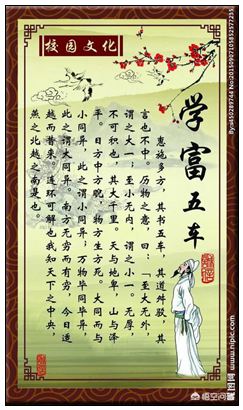 校园文化
学富五车
惠施多方，其书五车，其道舛驳，其
言也不中。历物之意，曰：「至大无外，
谓之大一；至小无内，谓之小一。无厚，
不可积也，其大千里。天与地卑，山与泽
平。日方中方睨，物方生方死。大同而与
小同异，此之谓小同异；万物毕同毕异，
此之谓大同异。南方无穷而有穷，今日适
越而昔来。连环可解也我知天下之中央，
燕之北越之南是也。
昵图网 www.nipic.com
悟空问答